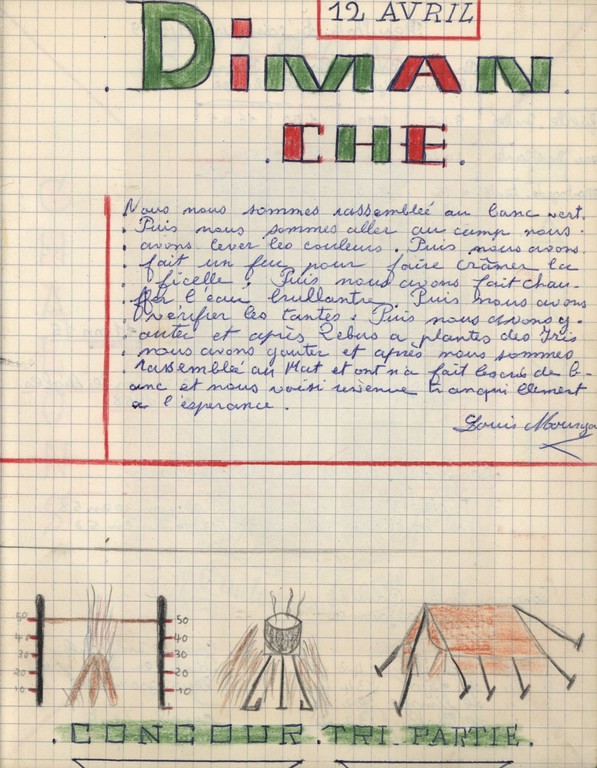 12 AVRIL
DiMAN
.CHE.
Nous nous sommes rassembleé au banc vert.
Puis nous sommes aller au camp nous
avons lever les couleurs. Puis nous avons
fait un feu pour faire crâmer la
ficelle. Puis nous avons fait chau-
ffer l'eau brullantre. Puis nous avons
vérifier les tantes. Puis nous avons g-
outer et après Rebus a plantes des Iris
nous avons gouter et après nous sommes
rassembleé au Mat et ont n'a fait les cris de b-
anc et nous voisi revenue tranquillement
a l'esperance.
Louis
50 50
40 40
30 30
20 20
10 10
.CONCOUR.TRI.PARTIE.